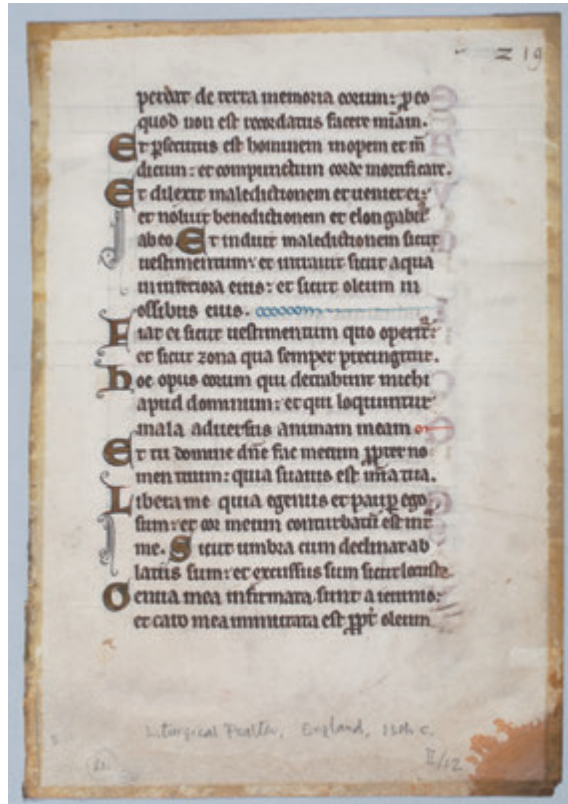 z 19
perdat de terra memoria eorum: ꝓ eo
quod non est recordatus facere mīam.
Et ꝑsecutus est hominem inopem et m̄
dicum: et compunctum corde mortificare.
Et dilexit maledictionem et ueniet ei:
et noluit benedictionem et elongabit᷑
ab eo. Et induit maledictionem sicut
uestimentum: et intrauit sicut aqua
in interiora eius: et sicut oleum in
ossibus eius.
Fiat ei sicut uestimentum quo operit᷑:
et sicut zona qua semper precingitur.
Hoc opus eorum qui detrahunt michi
apud dominum: et qui loquuntur
mala aduersus animam meam
Et tu domine dn̄e fac mecum ꝓpter no
men tuum: quia suauis est mīa tua.
Libera me quia egenus et pauꝑ ego
sum: et cor meum conturbatū est int᷑
me. Sicut umbra cum declinat ab
latus sum: et excussus sum sicut locuste
Genua mea infirmata sunt a ieiunio:
et caro mea inmutata est ꝓpt᷑ oleum
Liturgical Psalter, England, 13th c.
II/12